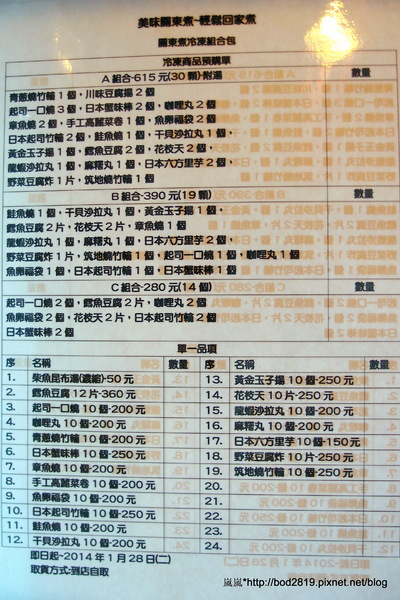 美味關東煮~輕鬆回家煮
關東煮冷凍組合包
冷凍商品預購單
A 組合-615 元(30 顆)-附湯 數量
青蔥燒竹輪 1 個，川味豆腐揚 2 個
起司一口燒 3 個，日本蟹味棒 2 個，咖哩丸 2 個
章魚燒 2 個，手工高麗菜卷 1 個，魚卵福袋 2 個
日本起司竹輪 2 個，鮭魚燒 1 個，干貝沙拉丸 1 個，
黃金玉子揚 1 個，鱈魚豆腐 2 個，花枝天 2 個，
龍蝦沙拉丸 1 個，麻糬丸 1 個，日本六方里芋 2 個
野菜豆腐炸 1 片，筑地燒竹輪 1 個
B 組合-390 元(19 顆) 數量
鮭魚燒 1 個，干貝沙拉丸 1 個，黃金玉子揚 1 個，
鱈魚豆腐 2 片，花枝天 2 片，章魚燒 1 個
龍蝦沙拉丸 1 個，麻糬丸 1 個，日本六方里芋 2 個，
野菜豆腐炸 1 片，筑地燒竹輪 1 個，起司一口燒 1 個，咖哩丸 1 個
魚卵福袋 1 個，日本起司竹輪 1 個，日本蟹味棒 1 個
C 組合-280 元(14 個) 數量
起司一口燒 2 個，鱈魚豆腐 2 片，咖哩丸 2 個
魚卵福袋 2 個，花枝天 2 片，日本起司竹輪 2 個
日本蟹味棒 2 個
單一品項
序 名稱 數量 序 名稱 數量
1. 柴魚昆布湯(濃縮)-50 元 13. 黃金玉子揚 10 個-250 元
2. 鱈魚豆腐 12 片-360 元 14. 花枝天 10 片-250 元
3. 起司一口燒 10 個-200 元 15. 龍蝦沙拉丸 10 個-200 元
4. 咖哩丸 10 個-200 元 16. 麻糬丸 10 個-200 元
5. 青蔥燒竹輪 10 個-200 元 17. 日本六方里芋 10 個-150 元
6. 日本蟹味棒 10 個-250 元 18. 野菜豆腐炸 10 片-250 元
7. 章魚燒 10 個-200 元 19. 筑地燒竹輪 10 個-250 元
8. 手工高麗菜卷 10 個-200 元 20.
9. 魚卵福袋 10 個-200 元 21.
10. 日本起司竹輪 10 個-250 元 22.
11. 鮭魚燒 10 個-200 元 23.
12. 干貝沙拉丸 10 個-200 元 24.
即日起~2014 年 1 月 28 日(二)
取貨方式-到店自取
嵐嵐*http://bod2819.pixnet.net/blog